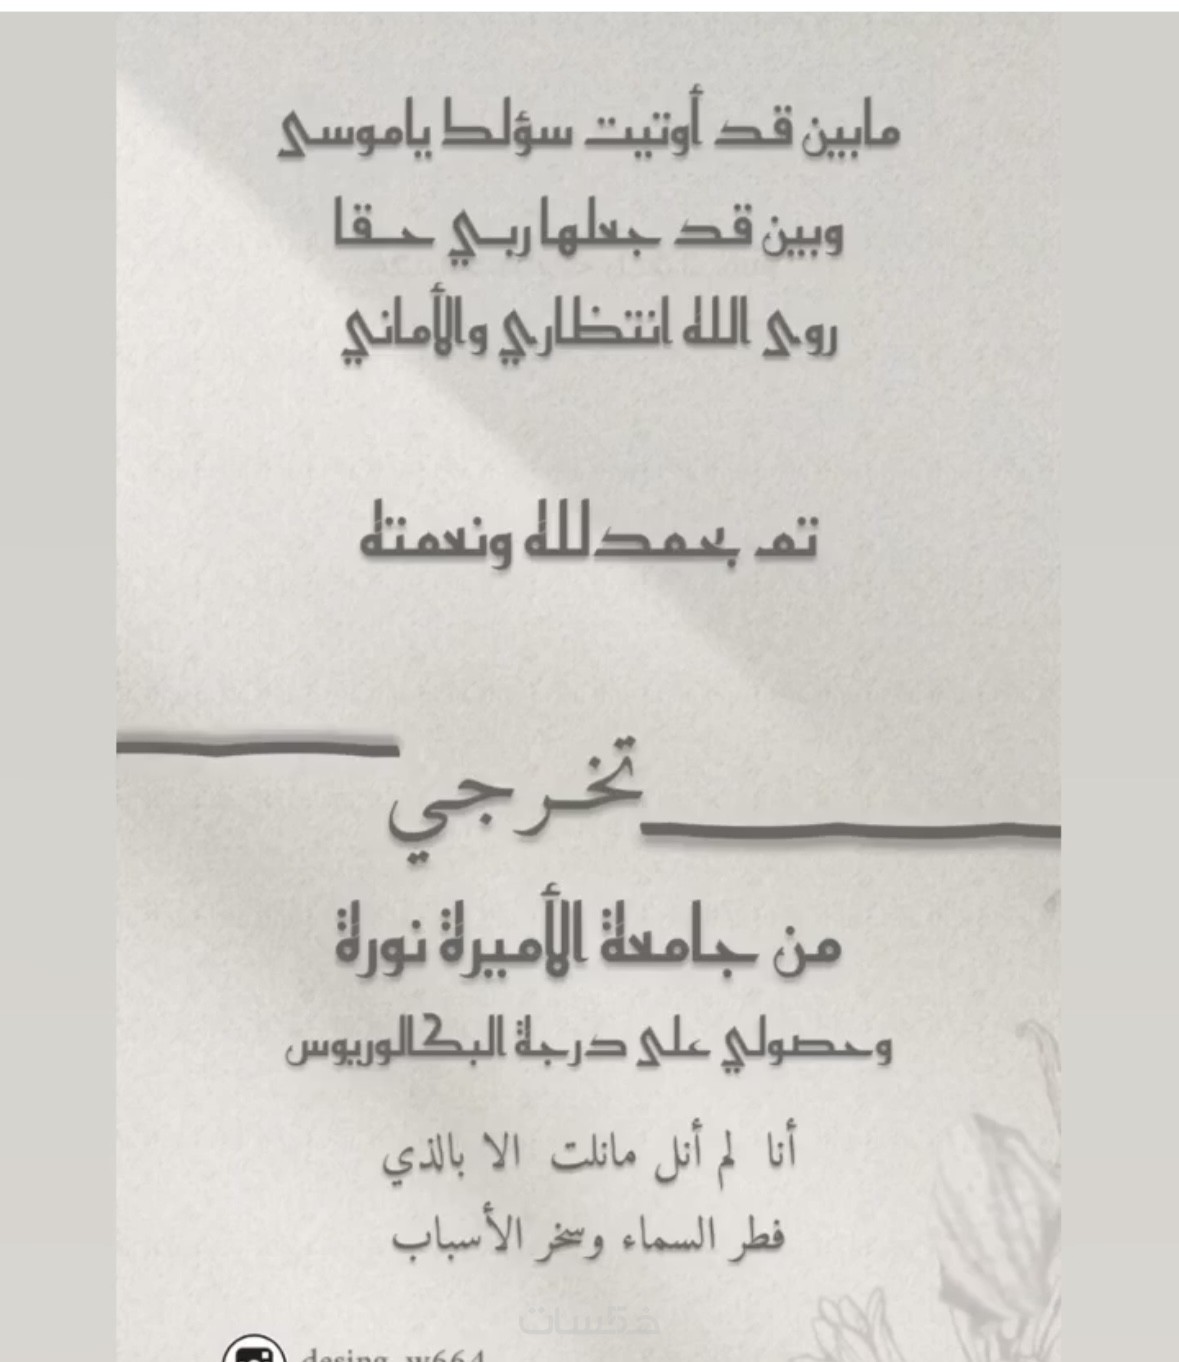 مابين قد أوتيت سؤلك ياموسى
وبين قد جعلها ربي حقا
روى الله انتظاري والأماني
تم بحمدلله ونعمته
تخرجي
من جامعة الأميرة نورة
وحصولي على درجة البكالوريوس
أنا لم أنل مانلت الا بالذي
فطر السماء وسخر الأسباب
خمسات
desing_w664